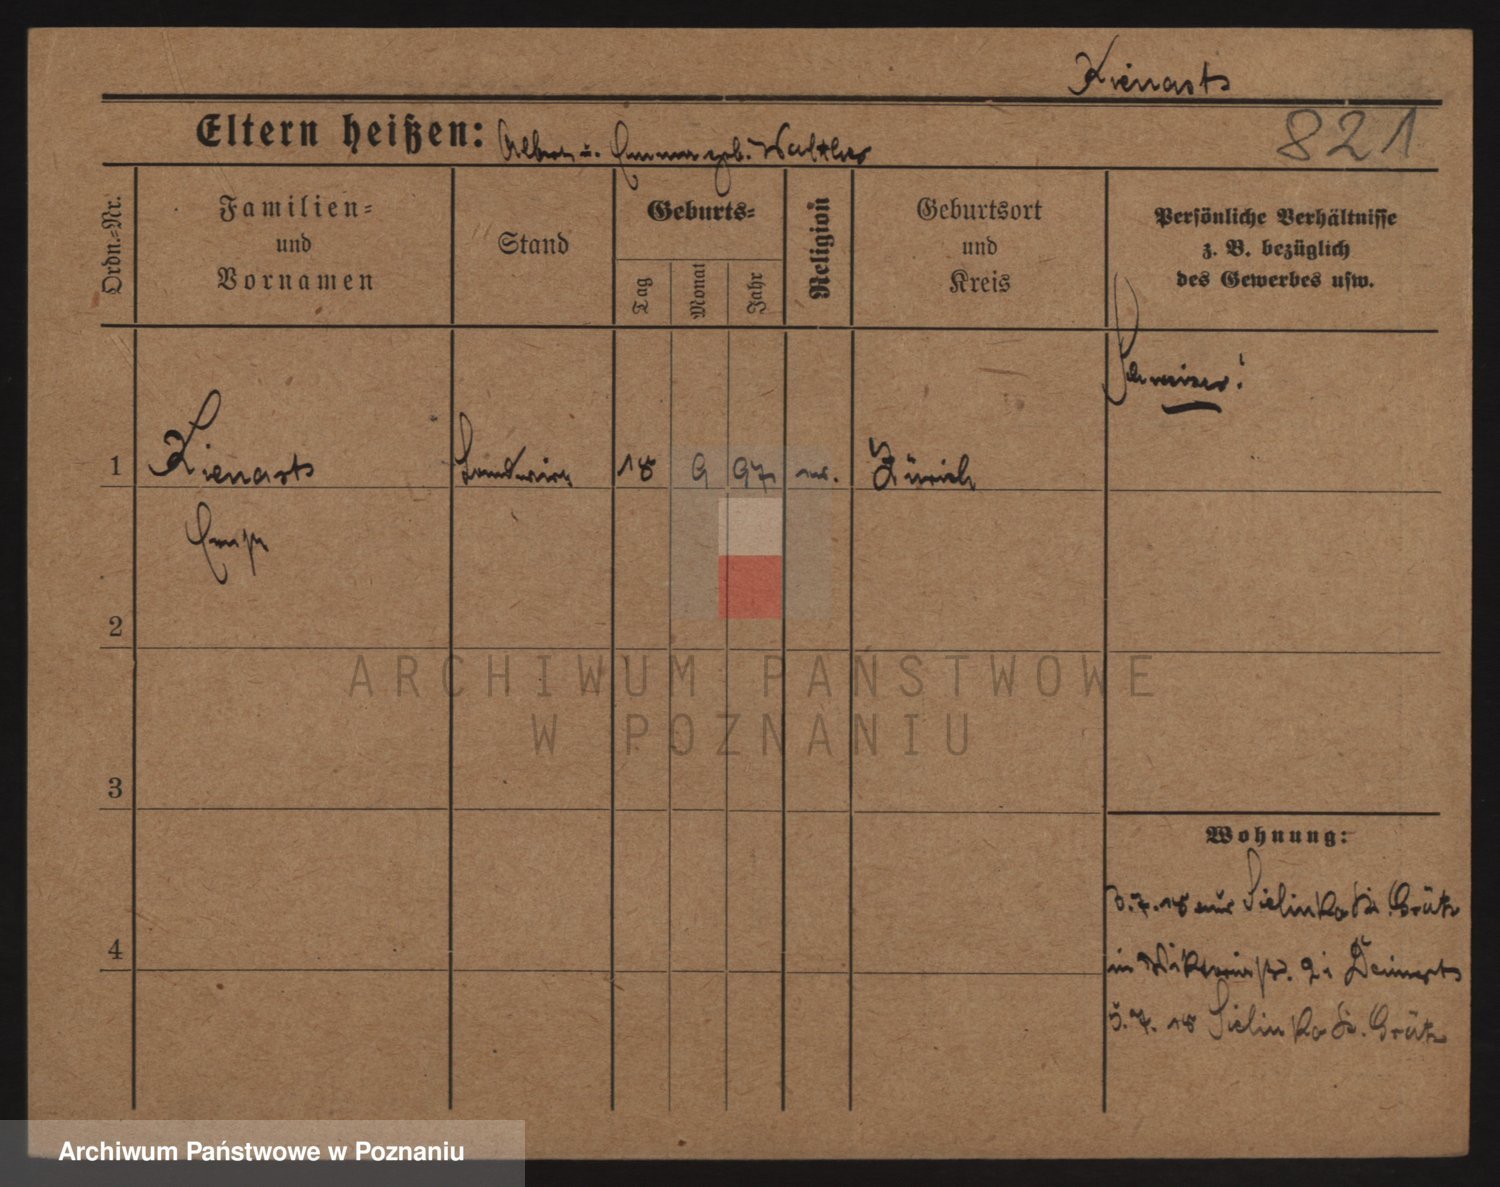 Kienast
Eltern heißen: Albert u. Emma geb. Walther
821
Ordn.=Nr.
Familien=
und
Vornamen
Stand
Geburts=
Tag
Monat
Jahr
Religion
Geburtsort
und
Kreis
Persönliche Verhältnisse
z. B. bezüglich
des Gewerbes usw.
Schweizer!
1
Kienast
Landwirt
18
9
97
ev.
Zürich
Ernst
2
ARCHIWUM PAŃSTWOWE
W POZNANIU
3
Wohnung:
3.7.18 aus Sielinko Kr. Grätz
4
in Viktoriastr. 21 Deinert
5.7.18 Sielinko Kr. Grätz
Archiwum Państwowe w Poznaniu